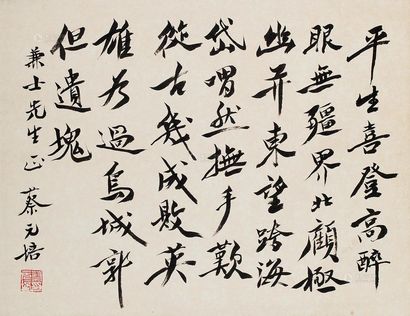 平生喜登高醉
眼無疆界北顧極
幽并東望跨海
岱喟然撫手歎
從古幾成敗英
雄過鳥城郭
但遺塊
兼士先生正 蔡元培